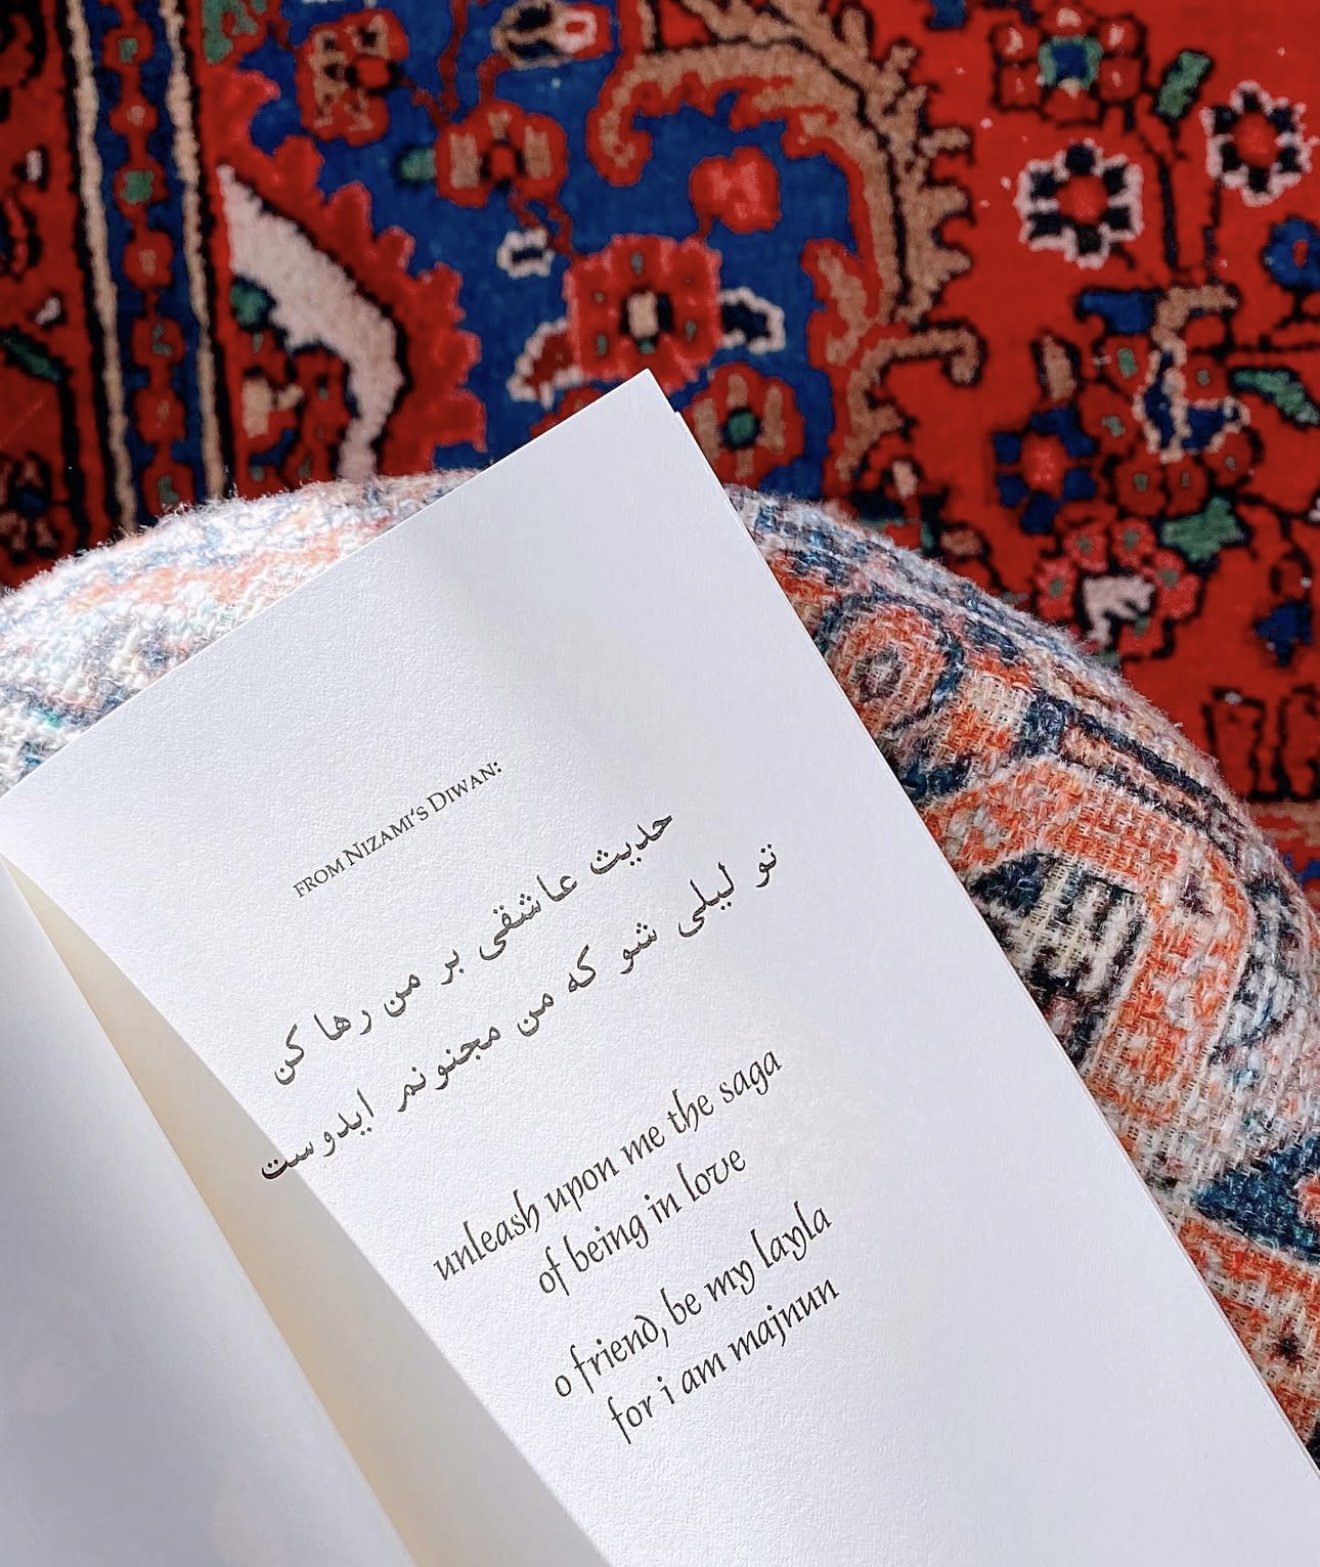 FROM NIZAMI'S DIWAN:
حدیث عاشقی بر من رها کن
تو لیلی شو که من مجنونم ایدوست
unleash upon me the saga
of being in love
o friend, be my layla
for i am majnun